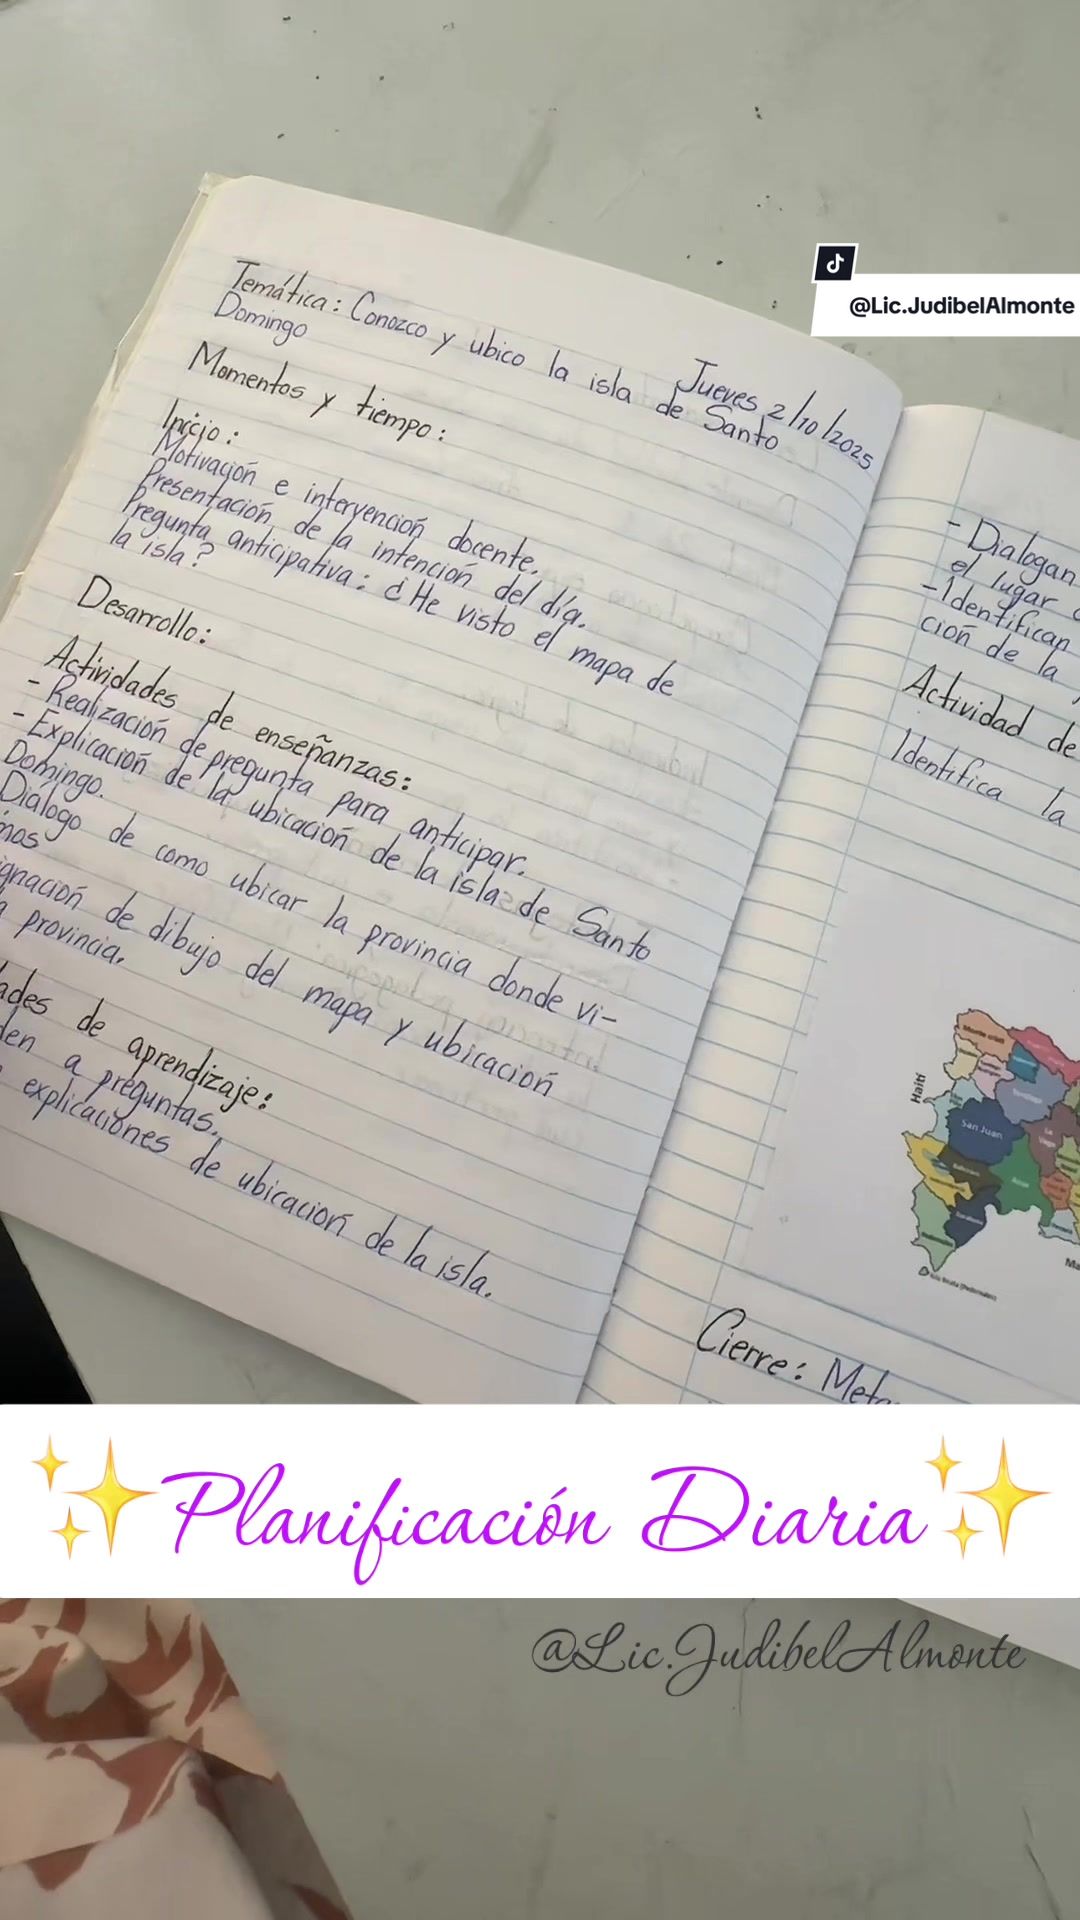 @Lic.JudibelAlmonte
Jueves 2/10/2025
Temática: Conozco y ubico la isla de Santo
Domingo
Momentos y tiempo:
Inicio:
Motivación e intervención docente.
Presentación de la intención del día.
Pregunta anticipativa: ¿He visto el mapa de
la isla?
Desarrollo:
Actividades de enseñanzas:
- Realización de pregunta para anticipar.
- Explicación de la ubicación de la isla de Santo
Domingo.
Diálogo de como ubicar la provincia donde vi-
mos
gnación de dibujo del mapa y ubicación
provincia.
ades de aprendizaje:
den a preguntas.
explicaciones de ubicación de la isla.
- Dialogan
el lugar
- Identifican
ción de la
Actividad de
Identifica la
Monte cristi
Haití
Santiago
San Juan
La
Vega
Azua
Ma
Cierre: Meta
Planificación Diaria
@Lic.JudibelAlmonte